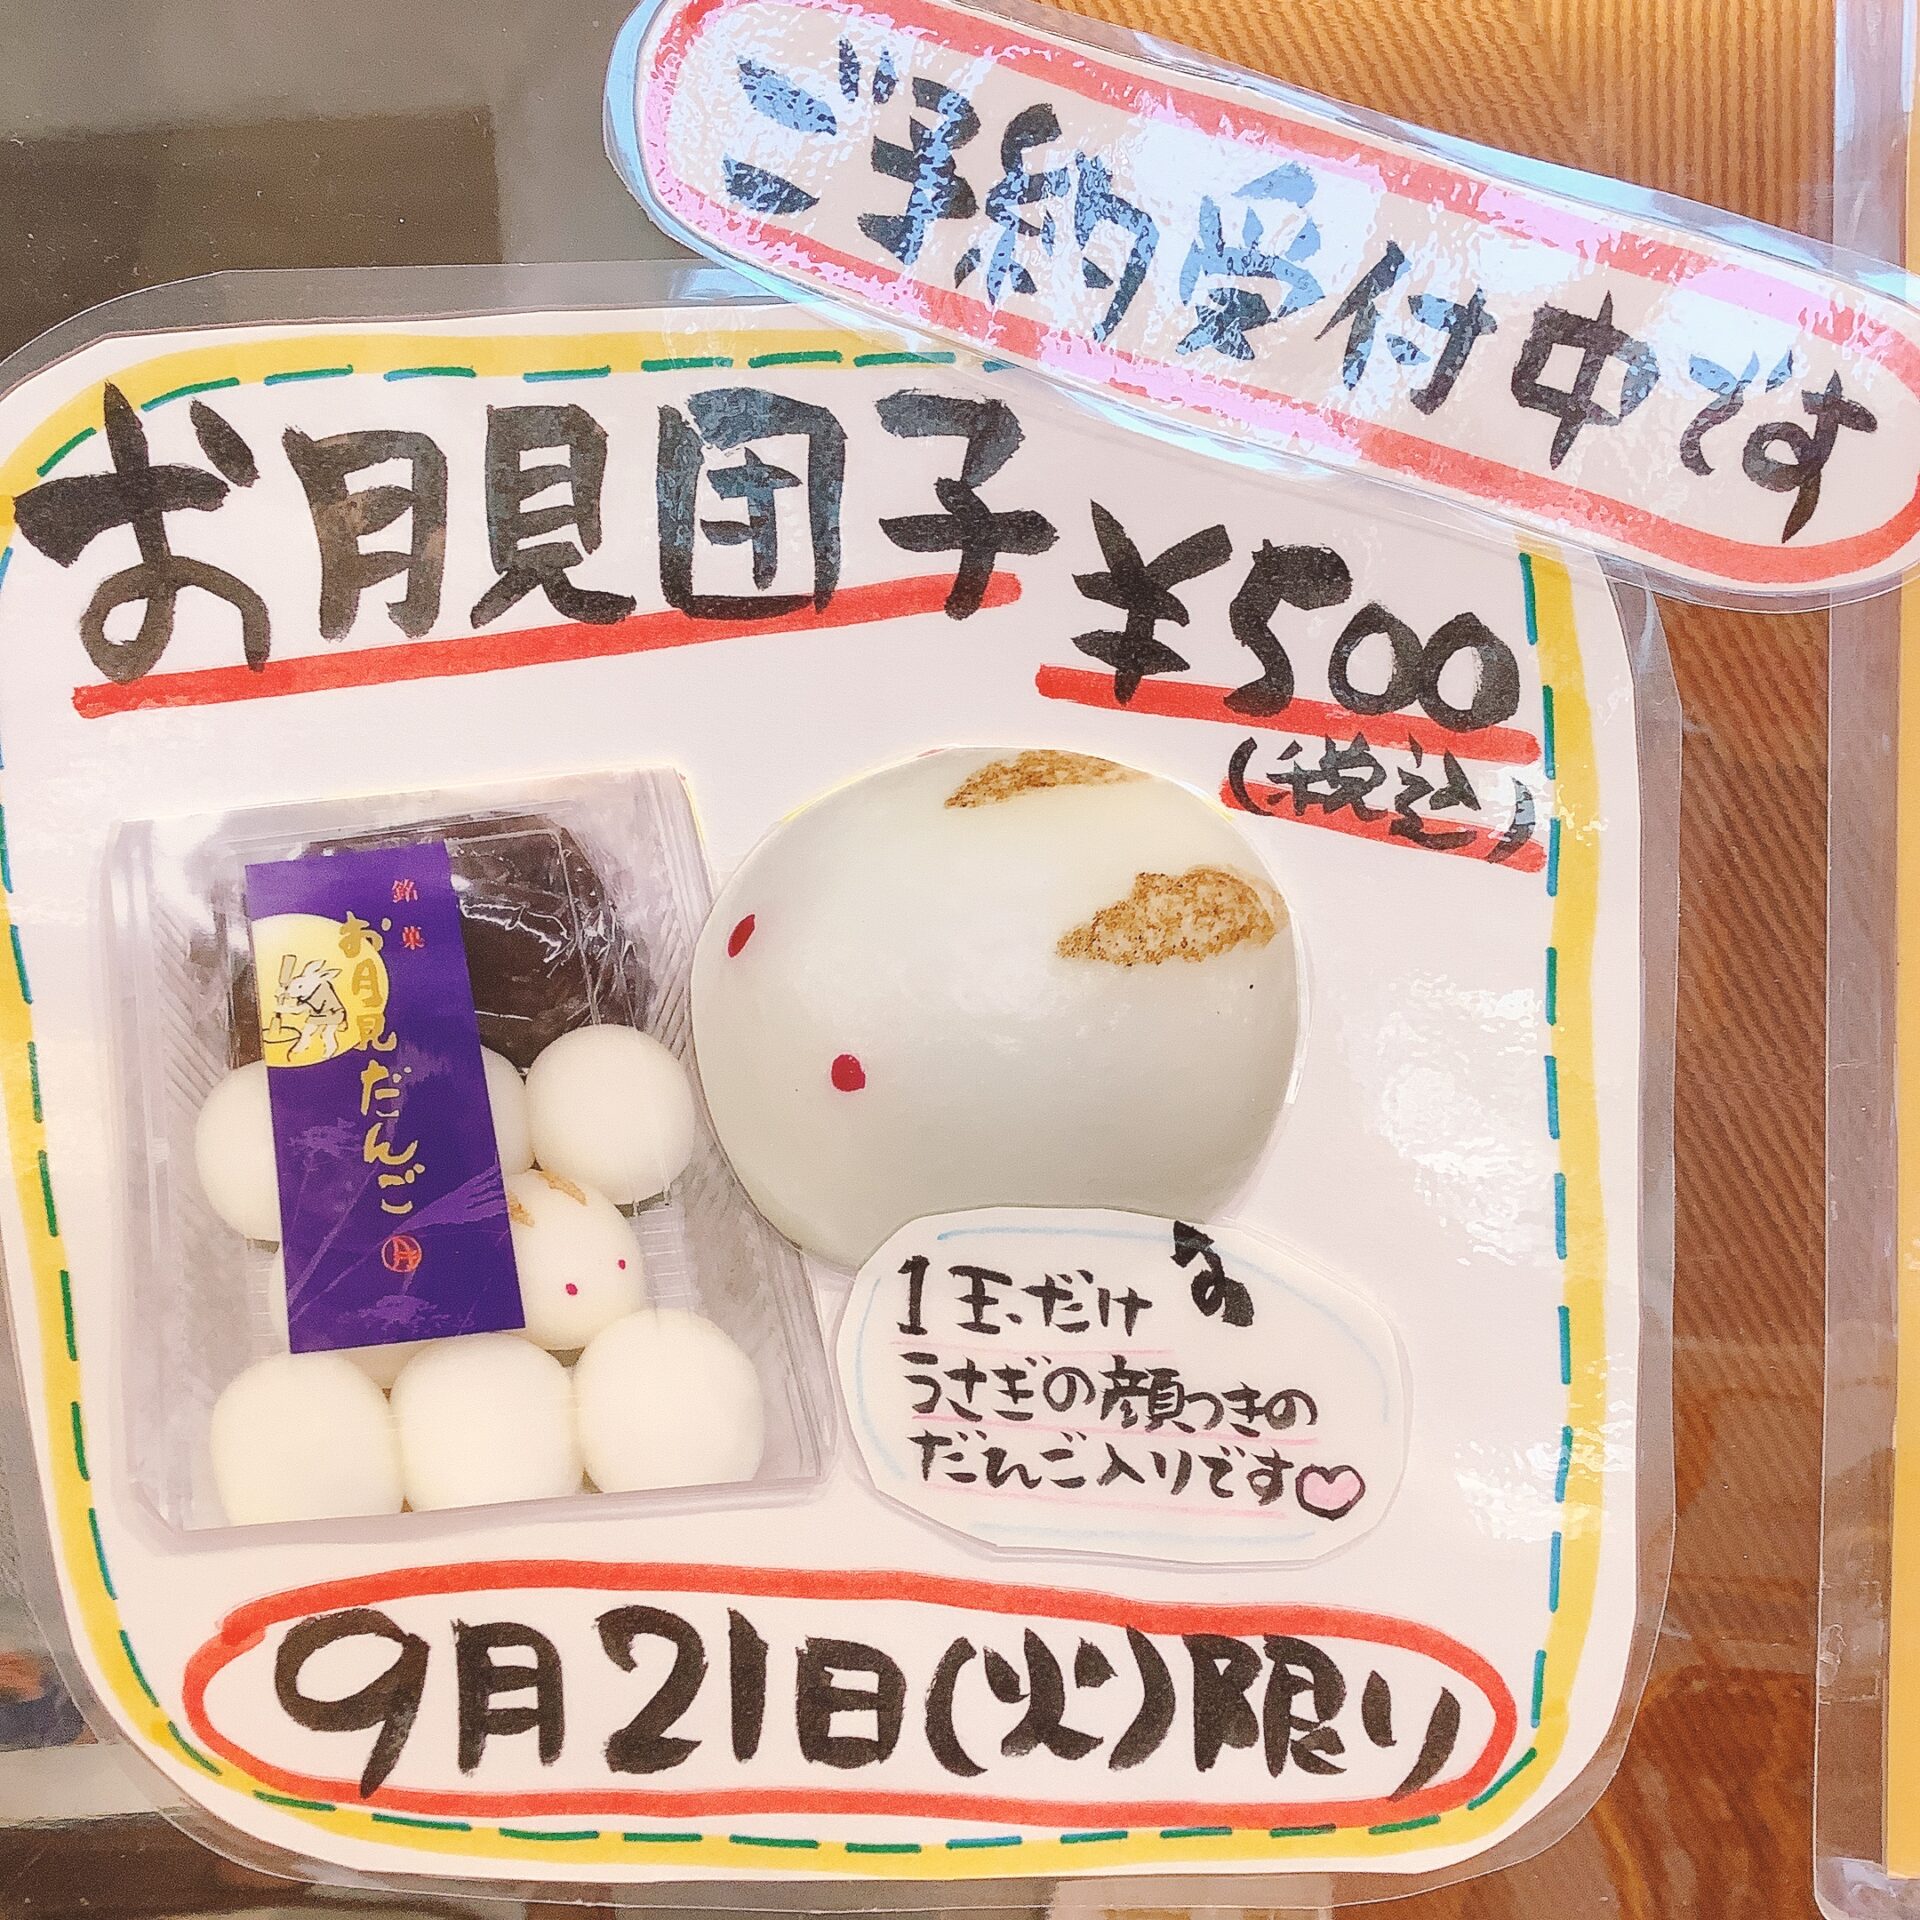 ご予約受付中です
お月見団子
¥500
(税込)
銘菓
お月見だんご
1玉だけ
うさぎの顔つきの
だんご入りです♡
9月21日(火)限り